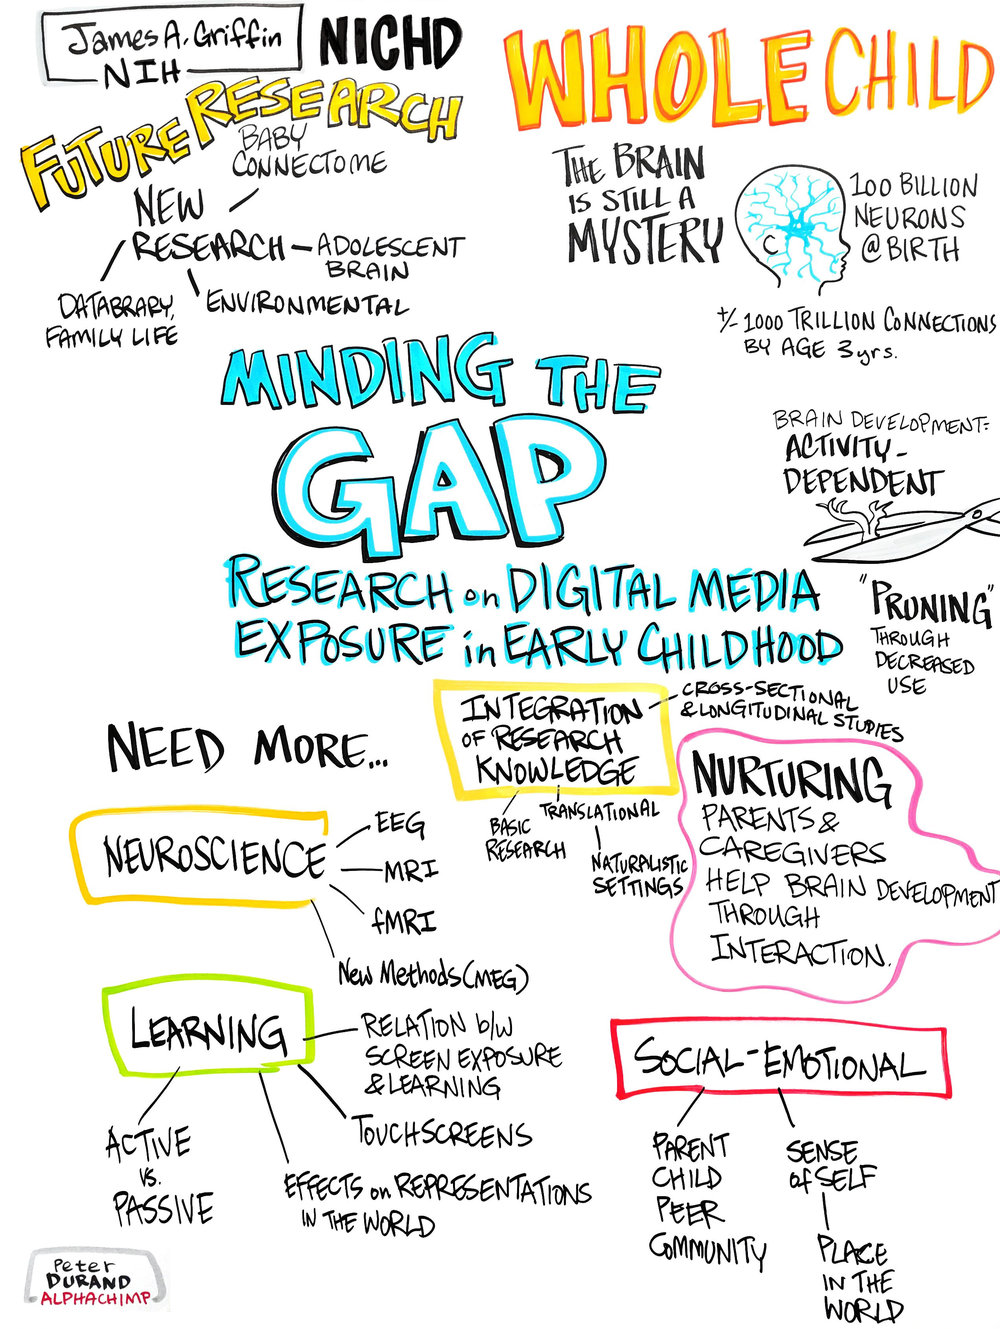 James A. Griffin
NIH
NICHD
FUTURE RESEARCH
BABY
CONNECTOME
NEW
RESEARCH
ADOLESCENT
BRAIN
ENVIRONMENTAL
DATABRARY,
FAMILY LIFE
WHOLE CHILD
THE BRAIN
IS STILL A
MYSTERY
C
100 BILLION
NEURONS
@ BIRTH
+/- 1000 TRILLION CONNECTIONS
BY AGE 3 yrs.
MINDING THE
GAP
RESEARCH on DIGITAL MEDIA
EXPOSURE in EARLY CHILDHOOD
BRAIN DEVELOPMENT:
ACTIVITY-
DEPENDENT
"PRUNING"
THROUGH
DECREASED
USE
NEED MORE...
INTEGRATION
OF RESEARCH
KNOWLEDGE
CROSS-SECTIONAL
& LONGITUDINAL STUDIES
BASIC
RESEARCH
TRANSLATIONAL
NATURALISTIC
SETTINGS
NEUROSCIENCE
EEG
MRI
fMRI
New Methods (MEG)
NURTURING
PARENTS &
CAREGIVERS
HELP BRAIN DEVELOPMENT
THROUGH
INTERACTION.
LEARNING
RELATION b/w
SCREEN EXPOSURE
& LEARNING
TOUCHSCREENS
EFFECTS on REPRESENTATIONS
IN THE WORLD
ACTIVE
vs.
PASSIVE
SOCIAL-EMOTIONAL
PARENT
CHILD
PEER
COMMUNITY
SENSE
of SELF
PLACE
IN THE
WORLD
Peter
DURAND
ALPHACHIMP